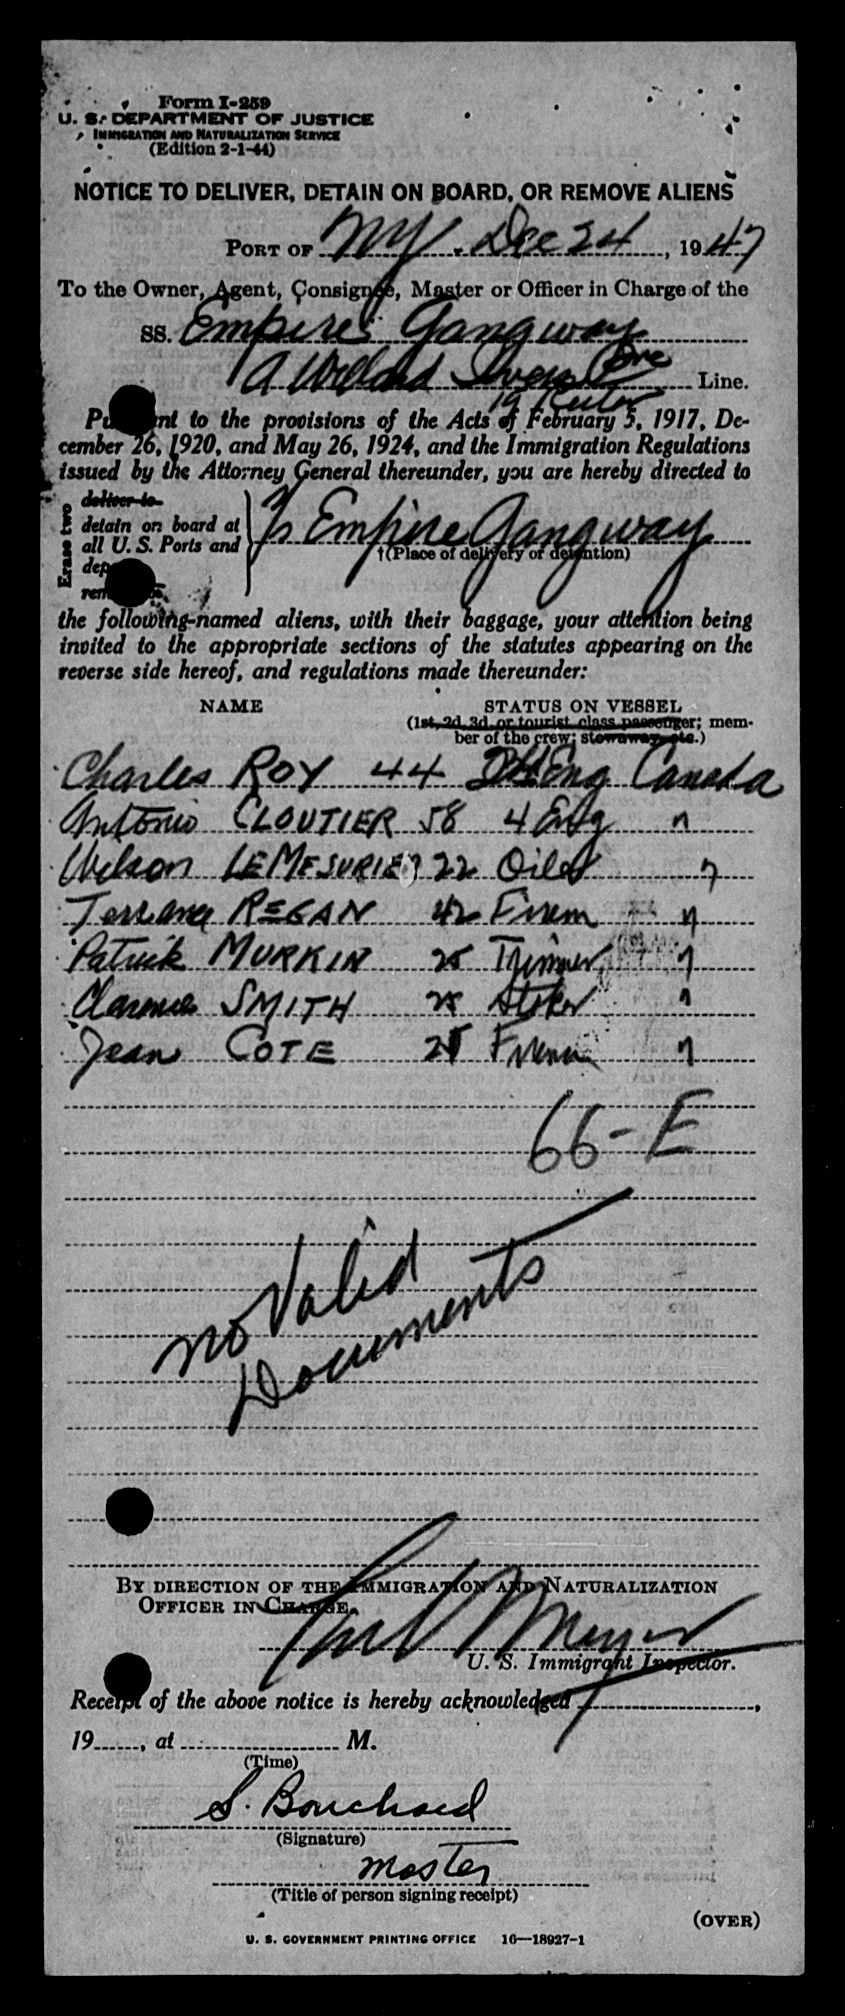 Form I-259
U. S. DEPARTMENT OF JUSTICE
IMMIGRATION AND NATURALIZATION SERVICE
(Edition 2-1-44)
NOTICE TO DELIVER, DETAIN ON BOARD, OR REMOVE ALIENS
PORT OF NY. Dec 24, 1947
To the Owner, Agent, Consignee, Master or Officer in Charge of the
SS. Empire Gangway
A Willard Ivers Line.
19 Rector
Pursuant to the provisions of the Acts of February 5, 1917, De-
cember 26, 1920, and May 26, 1924, and the Immigration Regulations
issued by the Attorney General thereunder, you are hereby directed to
Erase two
deliver to
detain on board at
all U. S. Ports and
Empire Gangway
†(Place of delivery or detention)
the following-named aliens, with their baggage, your attention being
invited to the appropriate sections of the statutes appearing on the
reverse side hereof, and regulations made thereunder:
NAME STATUS ON VESSEL
(1st, 2d, 3d, or tourist class passenger; mem-
ber of the crew; stowaway, etc.)
Charles ROY 44 Eng Canada
Antonio CLOUTIER 58 4 Eng "
Wilson LEMESURIER 22 Oiler "
Terrance REGAN 42 Firem "
Patrick MURKIN 25 Trimmer "
Clarence SMITH 25 Stoker "
Jean COTE 25 Firem "
66-E
no Valid
Documents
BY DIRECTION OF THE IMMIGRATION AND NATURALIZATION
OFFICER IN CHARGE.
Meyer
U. S. Immigrant Inspector.
Receipt of the above notice is hereby acknowledged ,
19 , at M.
(Time)
S. Bouchard
(Signature)
Master
(Title of person signing receipt)
(OVER)
U. S. GOVERNMENT PRINTING OFFICE 16—18927-1